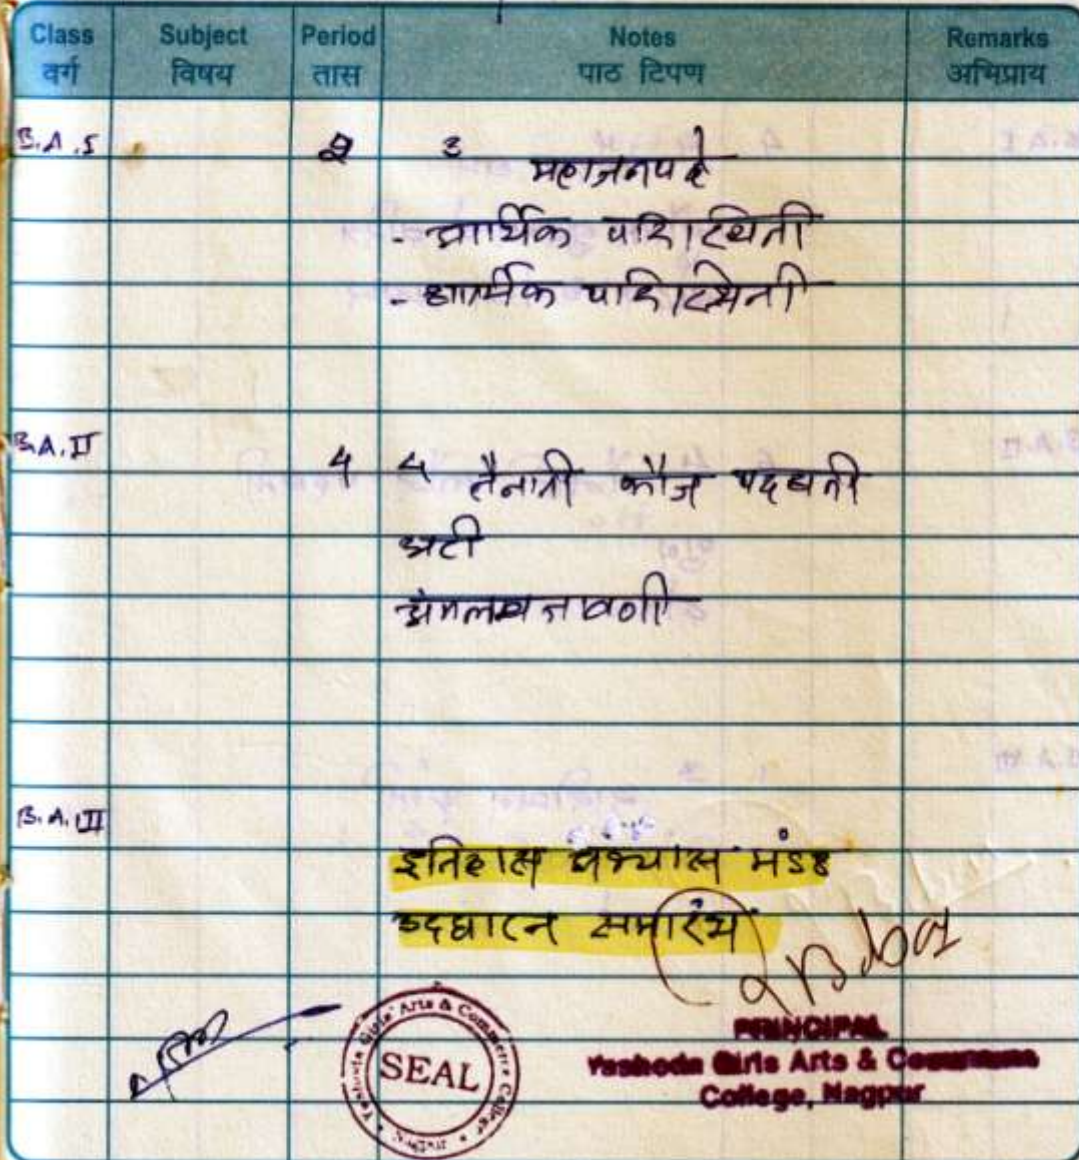 Class Subject Period Notes Remarks
वर्ग विषय तास पाठ टिपण अभिप्राय
B.A.I 2 3
महाजनपदे
- आर्थिक परिस्थिती
- धार्मिक परिस्थिती
B.A.II
4 4 तैनाती फौज पद्धती
अटी
अंमलबजावणी
B.A.III
इतिहास अभ्यास मंडळ
उद्घाटन समारंभ
Yashoda Girls' Arts & Commerce College
SEAL
PRINCIPAL
Yashoda Girls Arts & Commerce
College, Nagpur